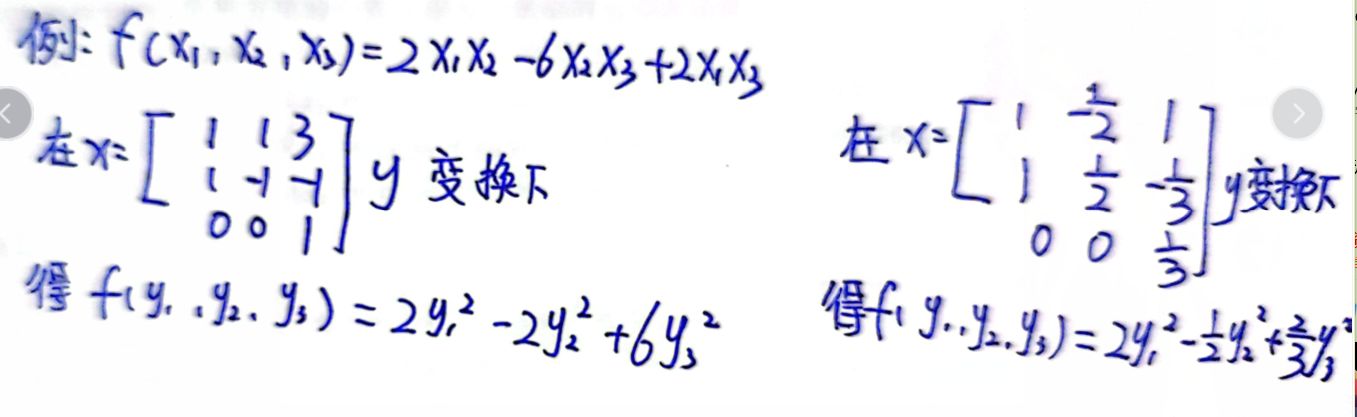 例: f(x₁, x₂, x₃) = 2x₁x₂ - 6x₂x₃ + 2x₁x₃
在 x = [1 1 3; 1 -1 -1; 0 0 1] y 变换下
得 f(y₁, y₂, y₃) = 2y₁² - 2y₂² + 6y₃²
在 x = [1 -1/2 1; 1 1/2 -1/3; 0 0 1/3] y变换下
得 f(y₁, y₂, y₃) = 2y₁² - 1/2 y₂² + 2/3 y₃²